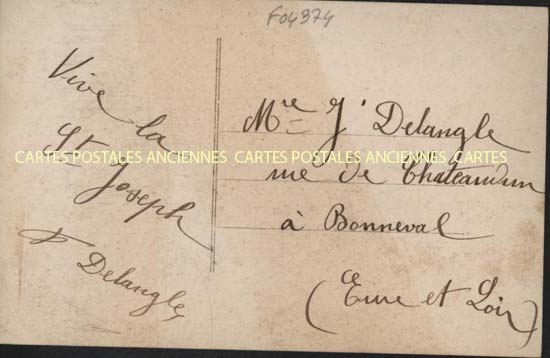 F04374
Vive la
St Joseph
Delangle
Mre J' Delangle
rue de Chateaudun
à Bonneval
(Eure et Loir)
CARTES POSTALES ANCIENNES CARTES POSTALES ANCIENNES CARTES